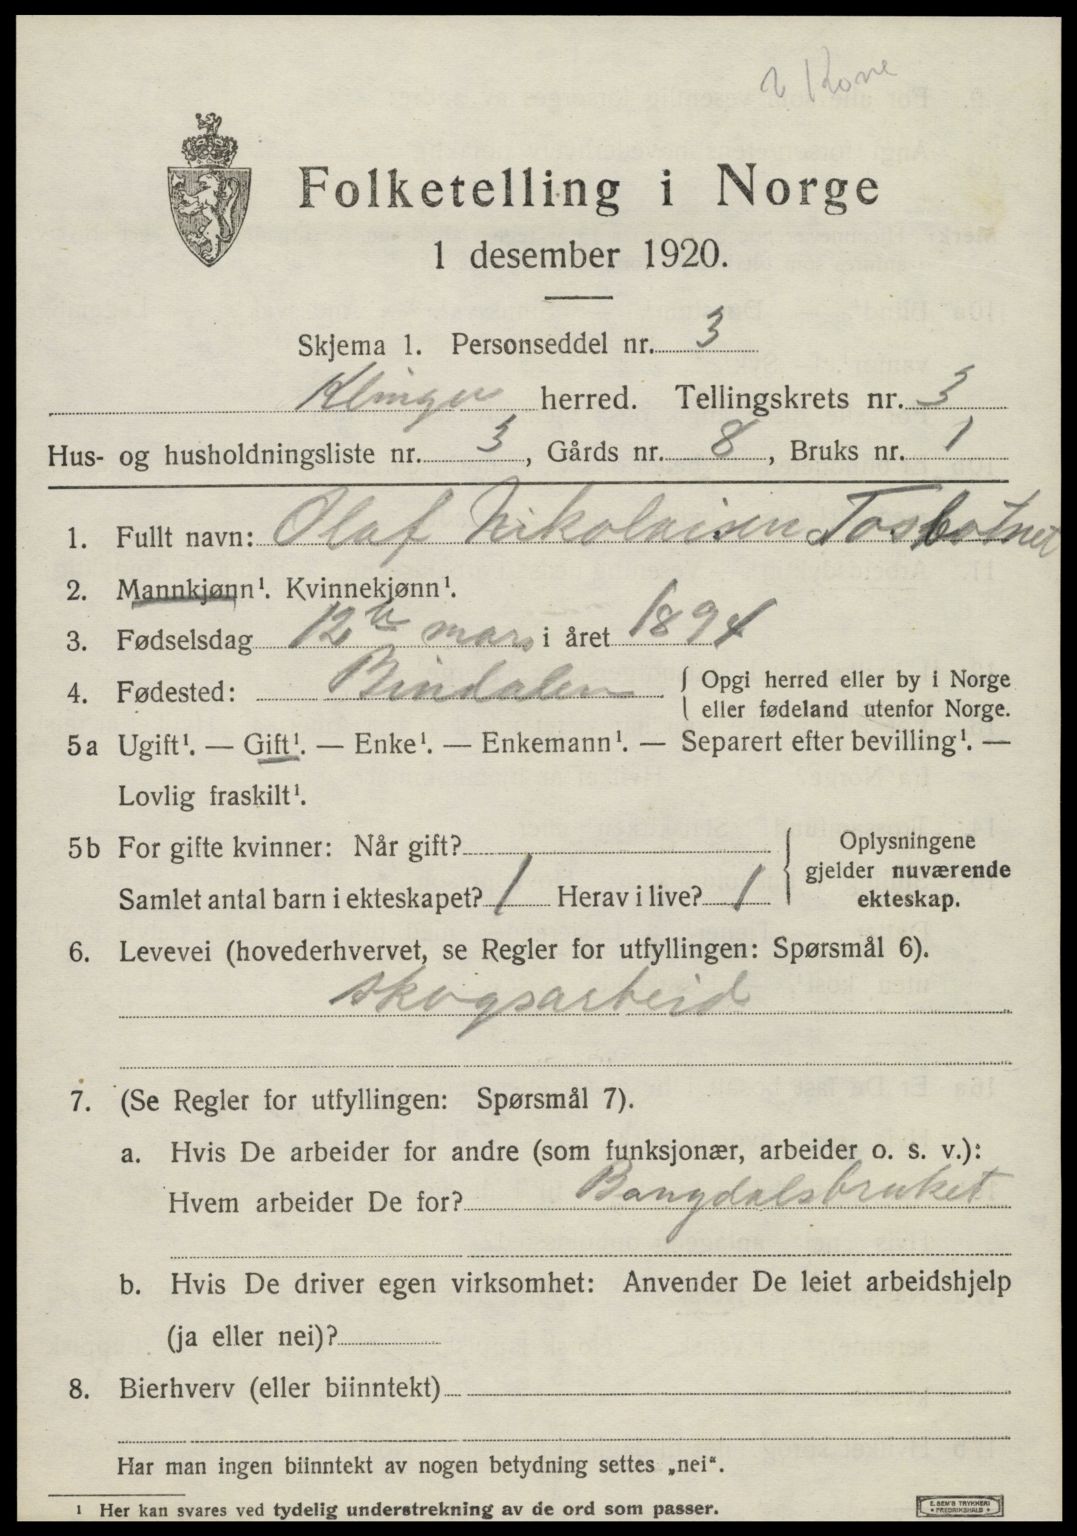 2 Kone
Folketelling i Norge
1 desember 1920.
Skjema 1. Personseddel nr. 3
Klinger herred. Tellingskrets nr. 3
Hus- og husholdningsliste nr. 3, Gårds nr. 8, Bruks nr. 1
1. Fullt navn: Olaf Nikolaisen Tosbotnet
2. Mannkjønn¹. Kvinnekjønn¹.
3. Fødselsdag 12te mars i året 1894
4. Fødested: Bindalen { Opgi herred eller by i Norge
eller fødeland utenfor Norge.
5a Ugift¹. — Gift¹. — Enke¹. — Enkemann¹. — Separert efter bevilling¹. —
Lovlig fraskilt¹.
5b For gifte kvinner: Når gift?
Samlet antal barn i ekteskapet? 1 Herav i live? 1
Oplysningene
gjelder nuværende
ekteskap.
6. Levevei (hovederhvervet, se Regler for utfyllingen: Spørsmål 6).
skogsarbeid
7. (Se Regler for utfyllingen: Spørsmål 7).
a. Hvis De arbeider for andre (som funksjonær, arbeider o. s. v.):
Hvem arbeider De for? Bangdalsbruket
b. Hvis De driver egen virksomhet: Anvender De leiet arbeidshjelp
(ja eller nei)?
8. Bierhverv (eller biinntekt)
Har man ingen biinntekt av nogen betydning settes „nei“.
¹ Her kan svares ved tydelig understrekning av de ord som passer.
E. SEM'S TRYKKERI
FREDRIKSHALD